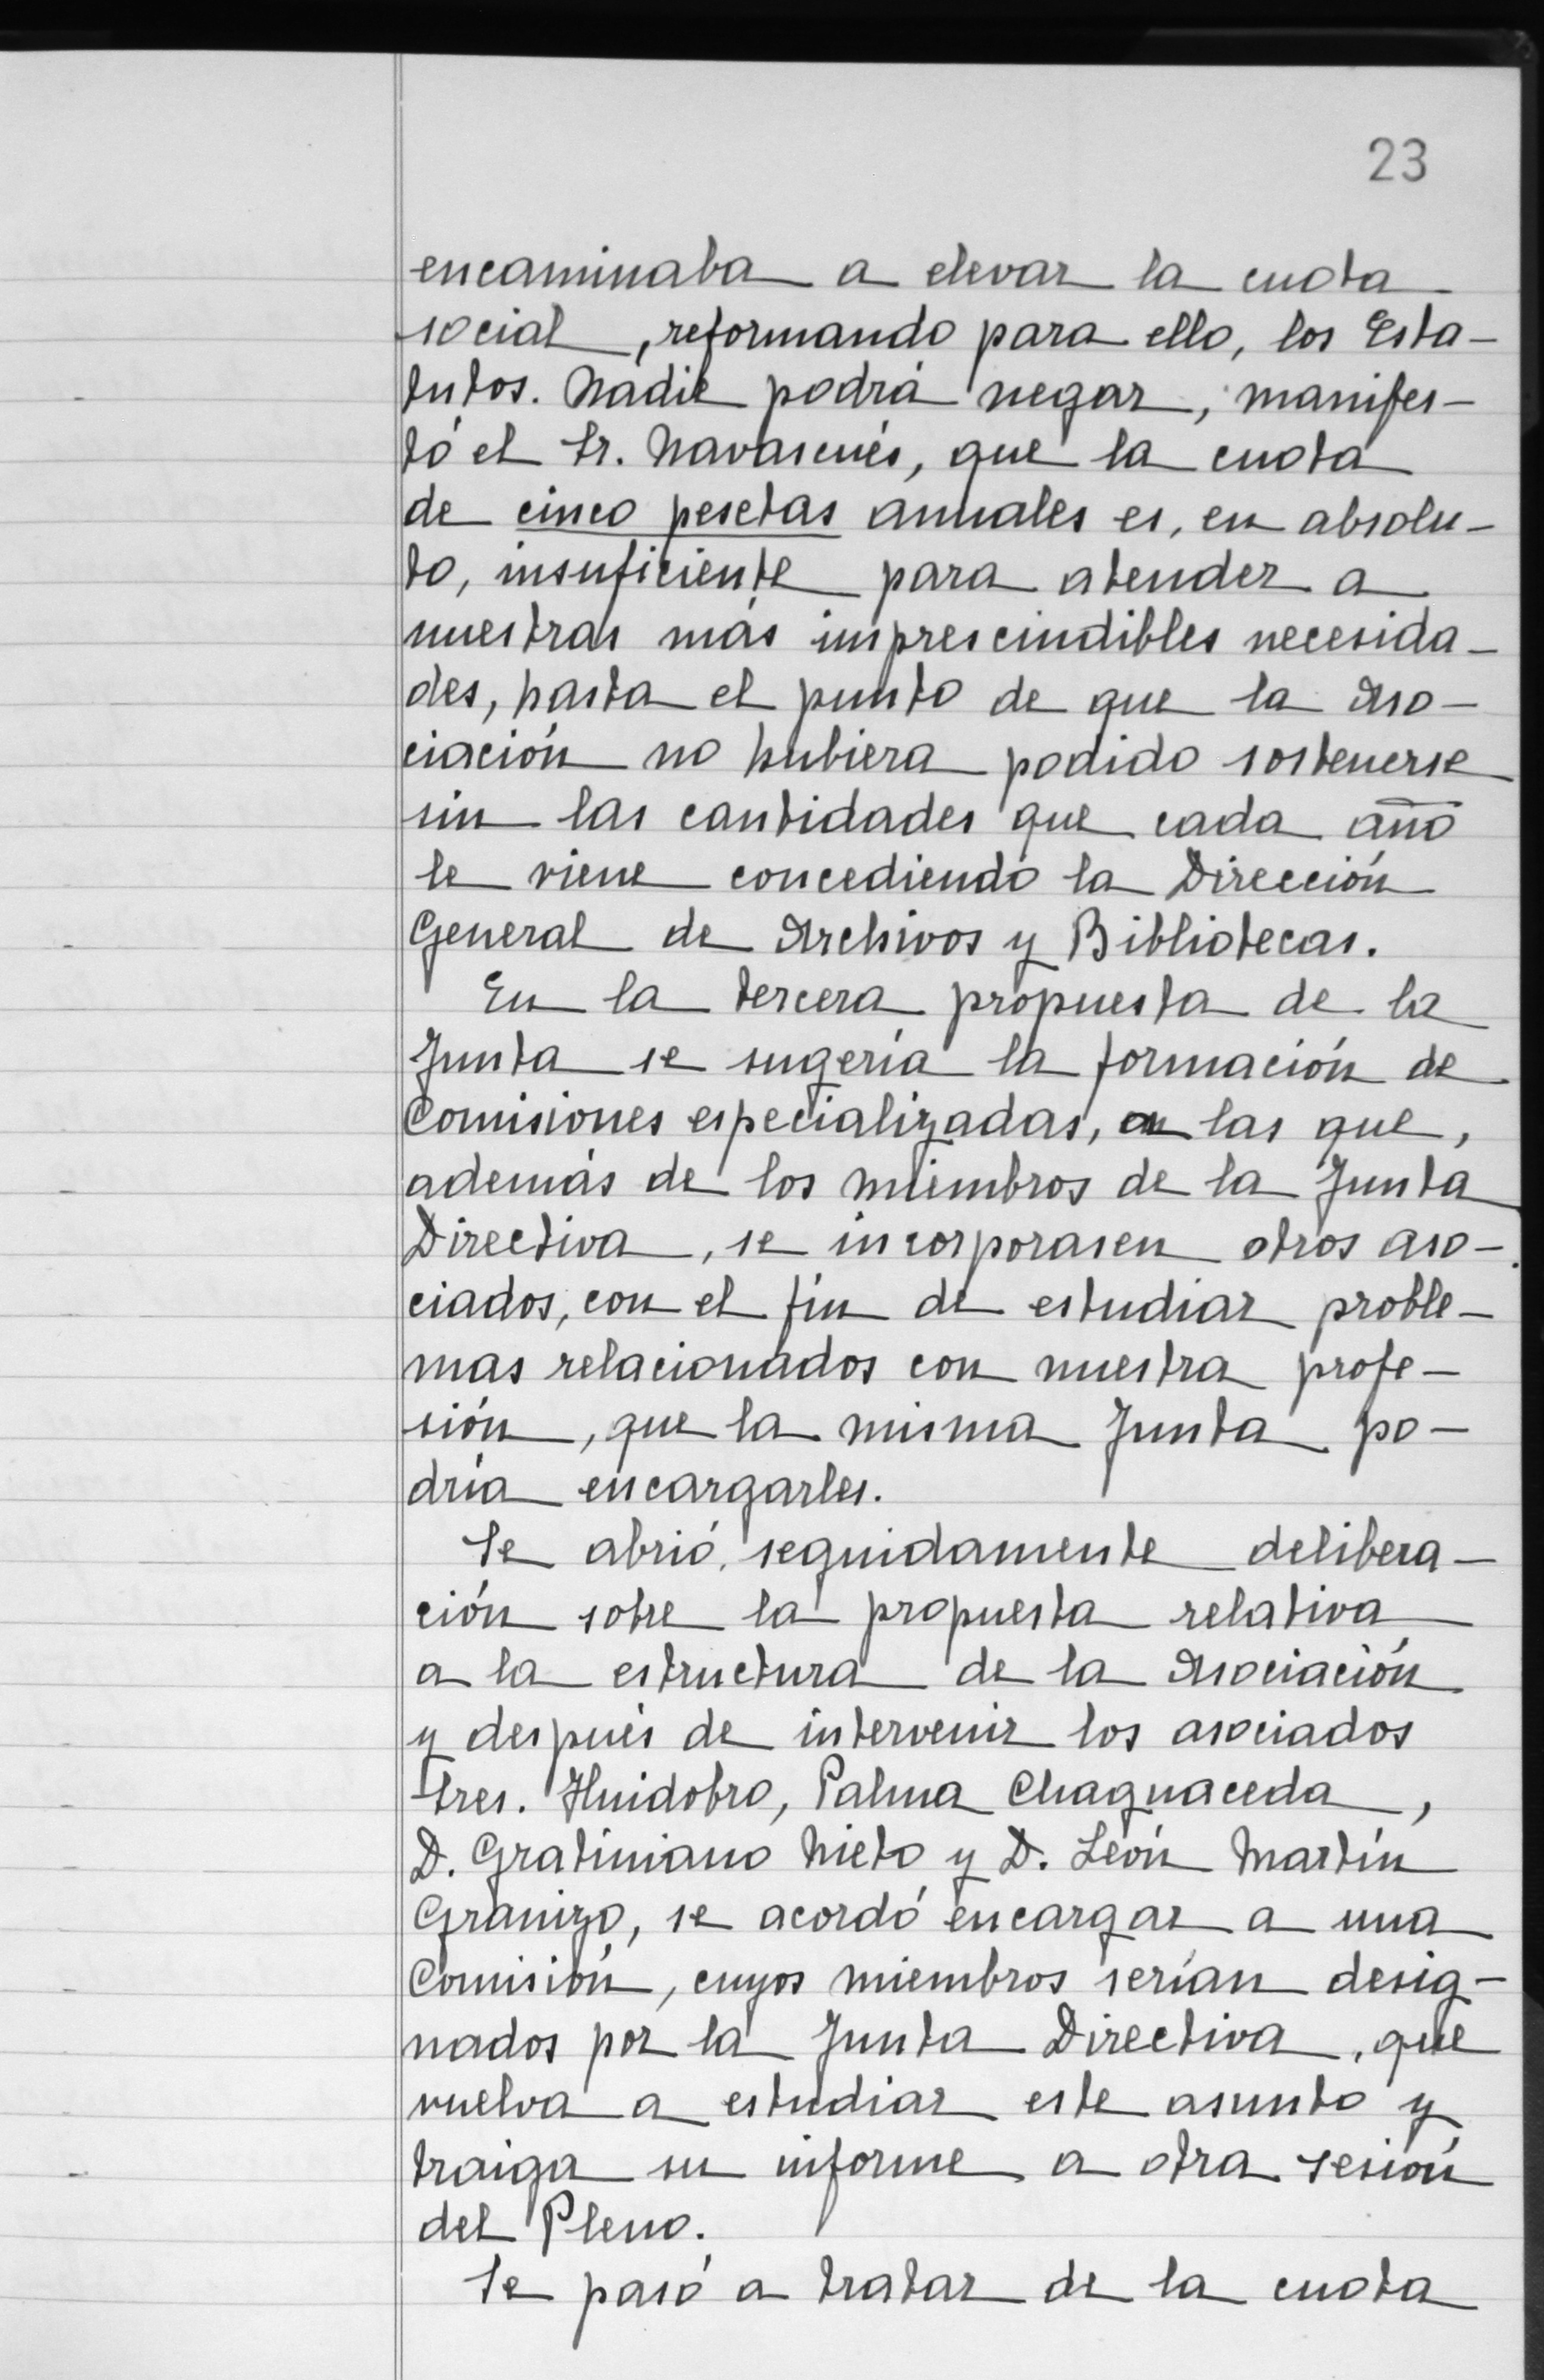 23
encaminaba a elevar la cuota
social, reformando para ello, los Esta-
tutos. Nadie podrá negar, manifes-
tó el Sr. Navascués, que la cuota
de cinco pesetas anuales es, en absolu-
to, insuficiente para atender a
nuestras más imprescindibles necesida-
des, hasta el punto de que la Aso-
ciación no hubiera podido sostenerse
sin las cantidades que cada año
le viene concediendo la Dirección
General de Archivos y Bibliotecas.
En la tercera propuesta de la
Junta se sugería la formación de
Comisiones especializadas, en las que,
además de los miembros de la Junta
Directiva, se incorporasen otros aso-
ciados, con el fin de estudiar proble-
mas relacionados con nuestra profe-
sión, que la misma Junta po-
dría encargarles.
Se abrió seguidamente delibera-
ción sobre la propuesta relativa
a la estructura de la Asociación
y después de intervenir los asociados
Sres. Huidobro, Palma Chaguaceda,
D. Gratiniano Nieto y D. León Martín
Granizo, se acordó encargar a una
Comisión, cuyos miembros serían desig-
nados por la Junta Directiva, que
vuelva a estudiar este asunto y
traiga su informe a otra sesión
del Pleno.
Se pasó a tratar de la cuota